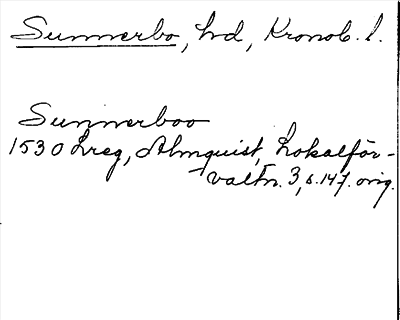 Sunnerbo, hd, Kronob. l.
Sunnerboo
1530 Lreg, Almquist, Lokalför-
valtn. 3, s. 147. orig.